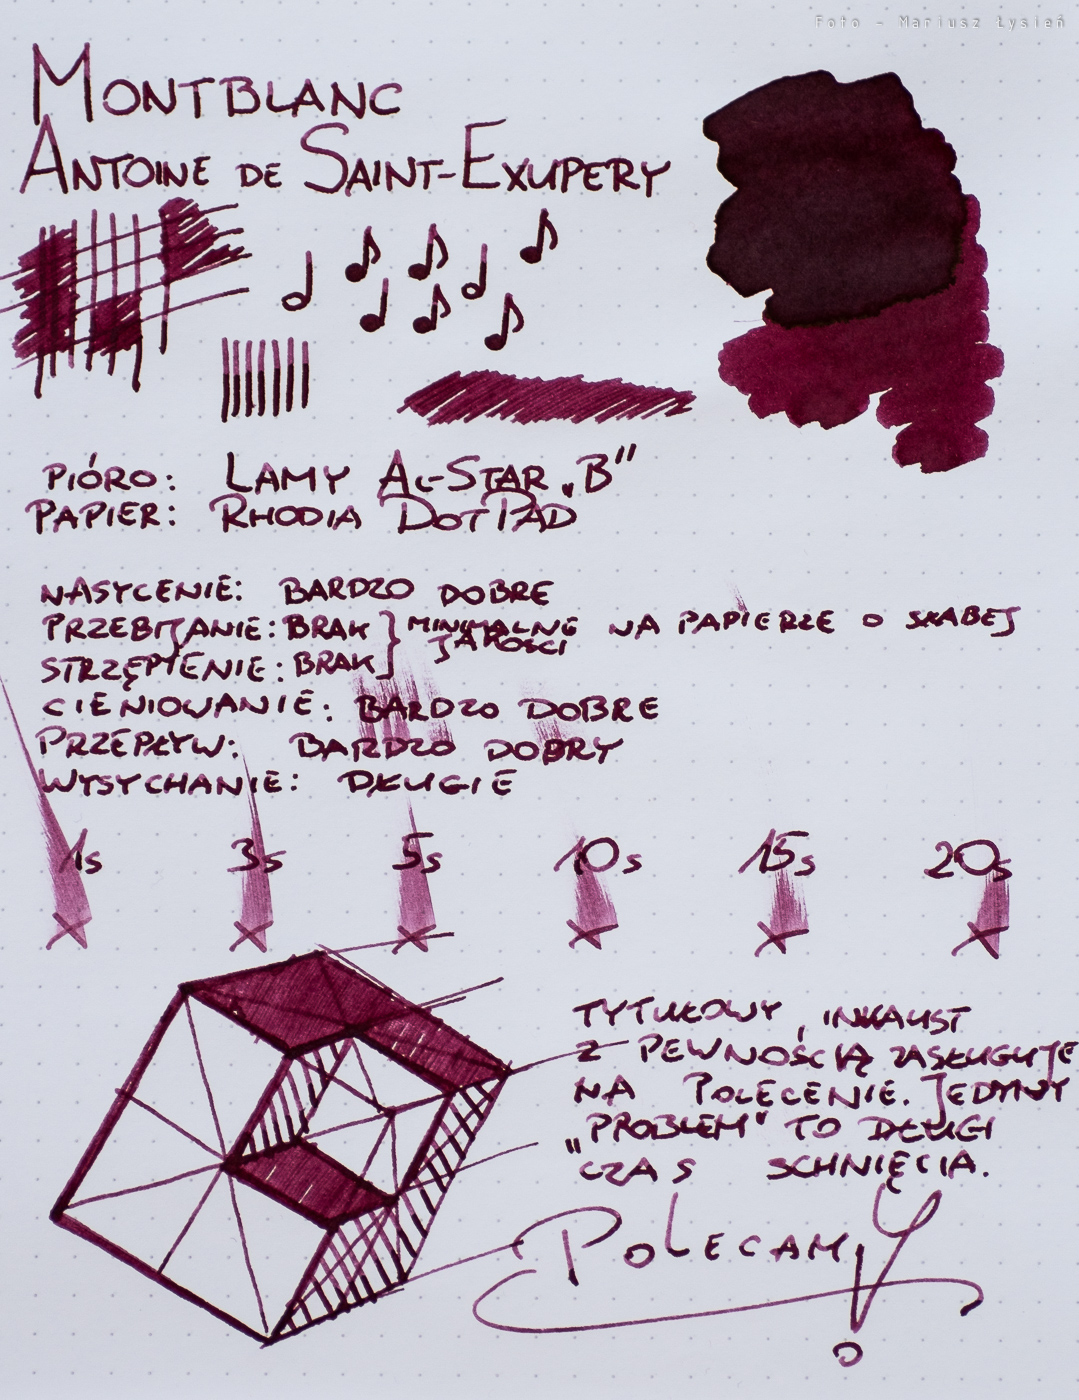 Foto - Mariusz Łysień
MONTBLANC
ANTOINE DE SAINT-EXUPERY
PIÓRO: LAMY AL-STAR „B”
PAPIER: RHODIA DOTPAD
NASYCENIE: BARDZO DOBRE
PRZEBIJANIE: BRAK } MINIMALNE NA PAPIERZE O SŁABEJ
JAKOŚCI
STRZĘPIENIE: BRAK
CIENIOWANIE: BARDZO DOBRE
PRZEPŁYW: BARDZO DOBRY
WYSYCHANIE: DŁUGIE
1s 3s 5s 10s 15s 20s
TYTUŁOWY INKAUST
Z PEWNOŚCIĄ ZASŁUGUJE
NA POLECENIE. JEDYNY
„PROBLEM” TO DŁUGI
CZAS SCHNIĘCIA.
POLECAMY!